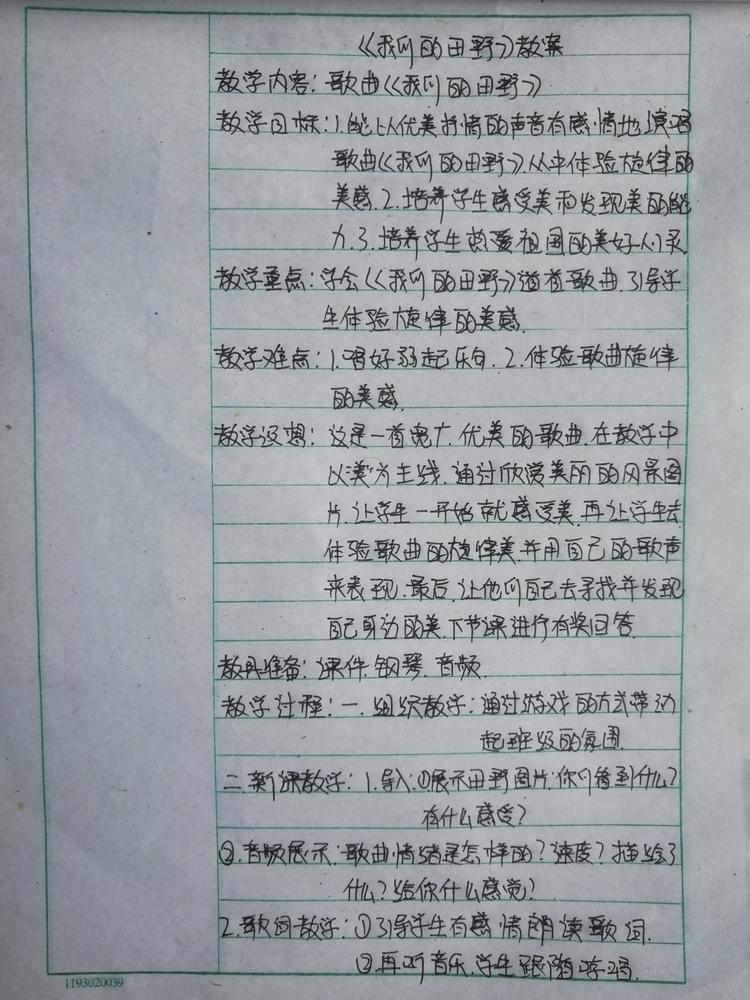 《我们的田野》教案
教学内容：歌曲《我们的田野》
教学目标：1.能以优美抒情的声音有感情地演唱
歌曲《我们的田野》.从中体验旋律的
美感.2.培养学生感受美和发现美的能
力.3.培养学生热爱祖国的美好
教学重点：学会《我们的田野》这首歌曲.引导学
生体验旋律的美感.
教学难点：1.唱好弱起乐句.2.体验歌曲旋律
的美感.
教学设想：这是一首宽广.优美的歌曲.在教学中
以"美"为主线.通过欣赏美丽的风景图
片.让学生一开始就感受美.再让学生去
体验歌曲的旋律美.并用自己的歌声
来表现.最后.让他们自己去寻找并发现
自己身边的美.下节课进行有奖回答.
教具准备：课件.钢琴.音频.
教学过程：一.组织教学：通过游戏的方式带动
起班级的氛围.
二.新课教学：1.导入.①展示田野图片.你们看到什么？
有什么感受？
②.音频展示：歌曲情绪是怎样的？速度？描绘了
什么？给你什么感觉？
2.歌词教学：①引导学生有感情朗读歌词.
②.再听音乐.学生跟随哼唱.
1193020039